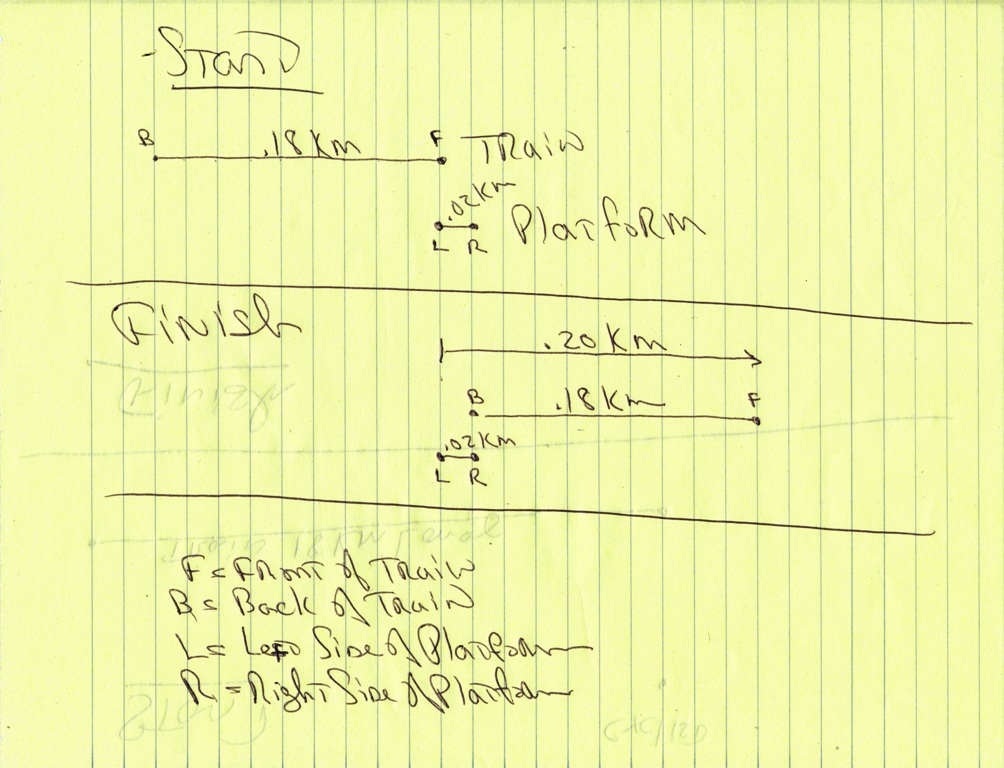 Start
B .18 Km F Train
.02 Km
L R Platform
Finish
.20 Km
B .18 Km F
.02 Km
L R
F = Front of Train
B = Back of Train
L = Left Side of Platform
R = Right Side of Platform